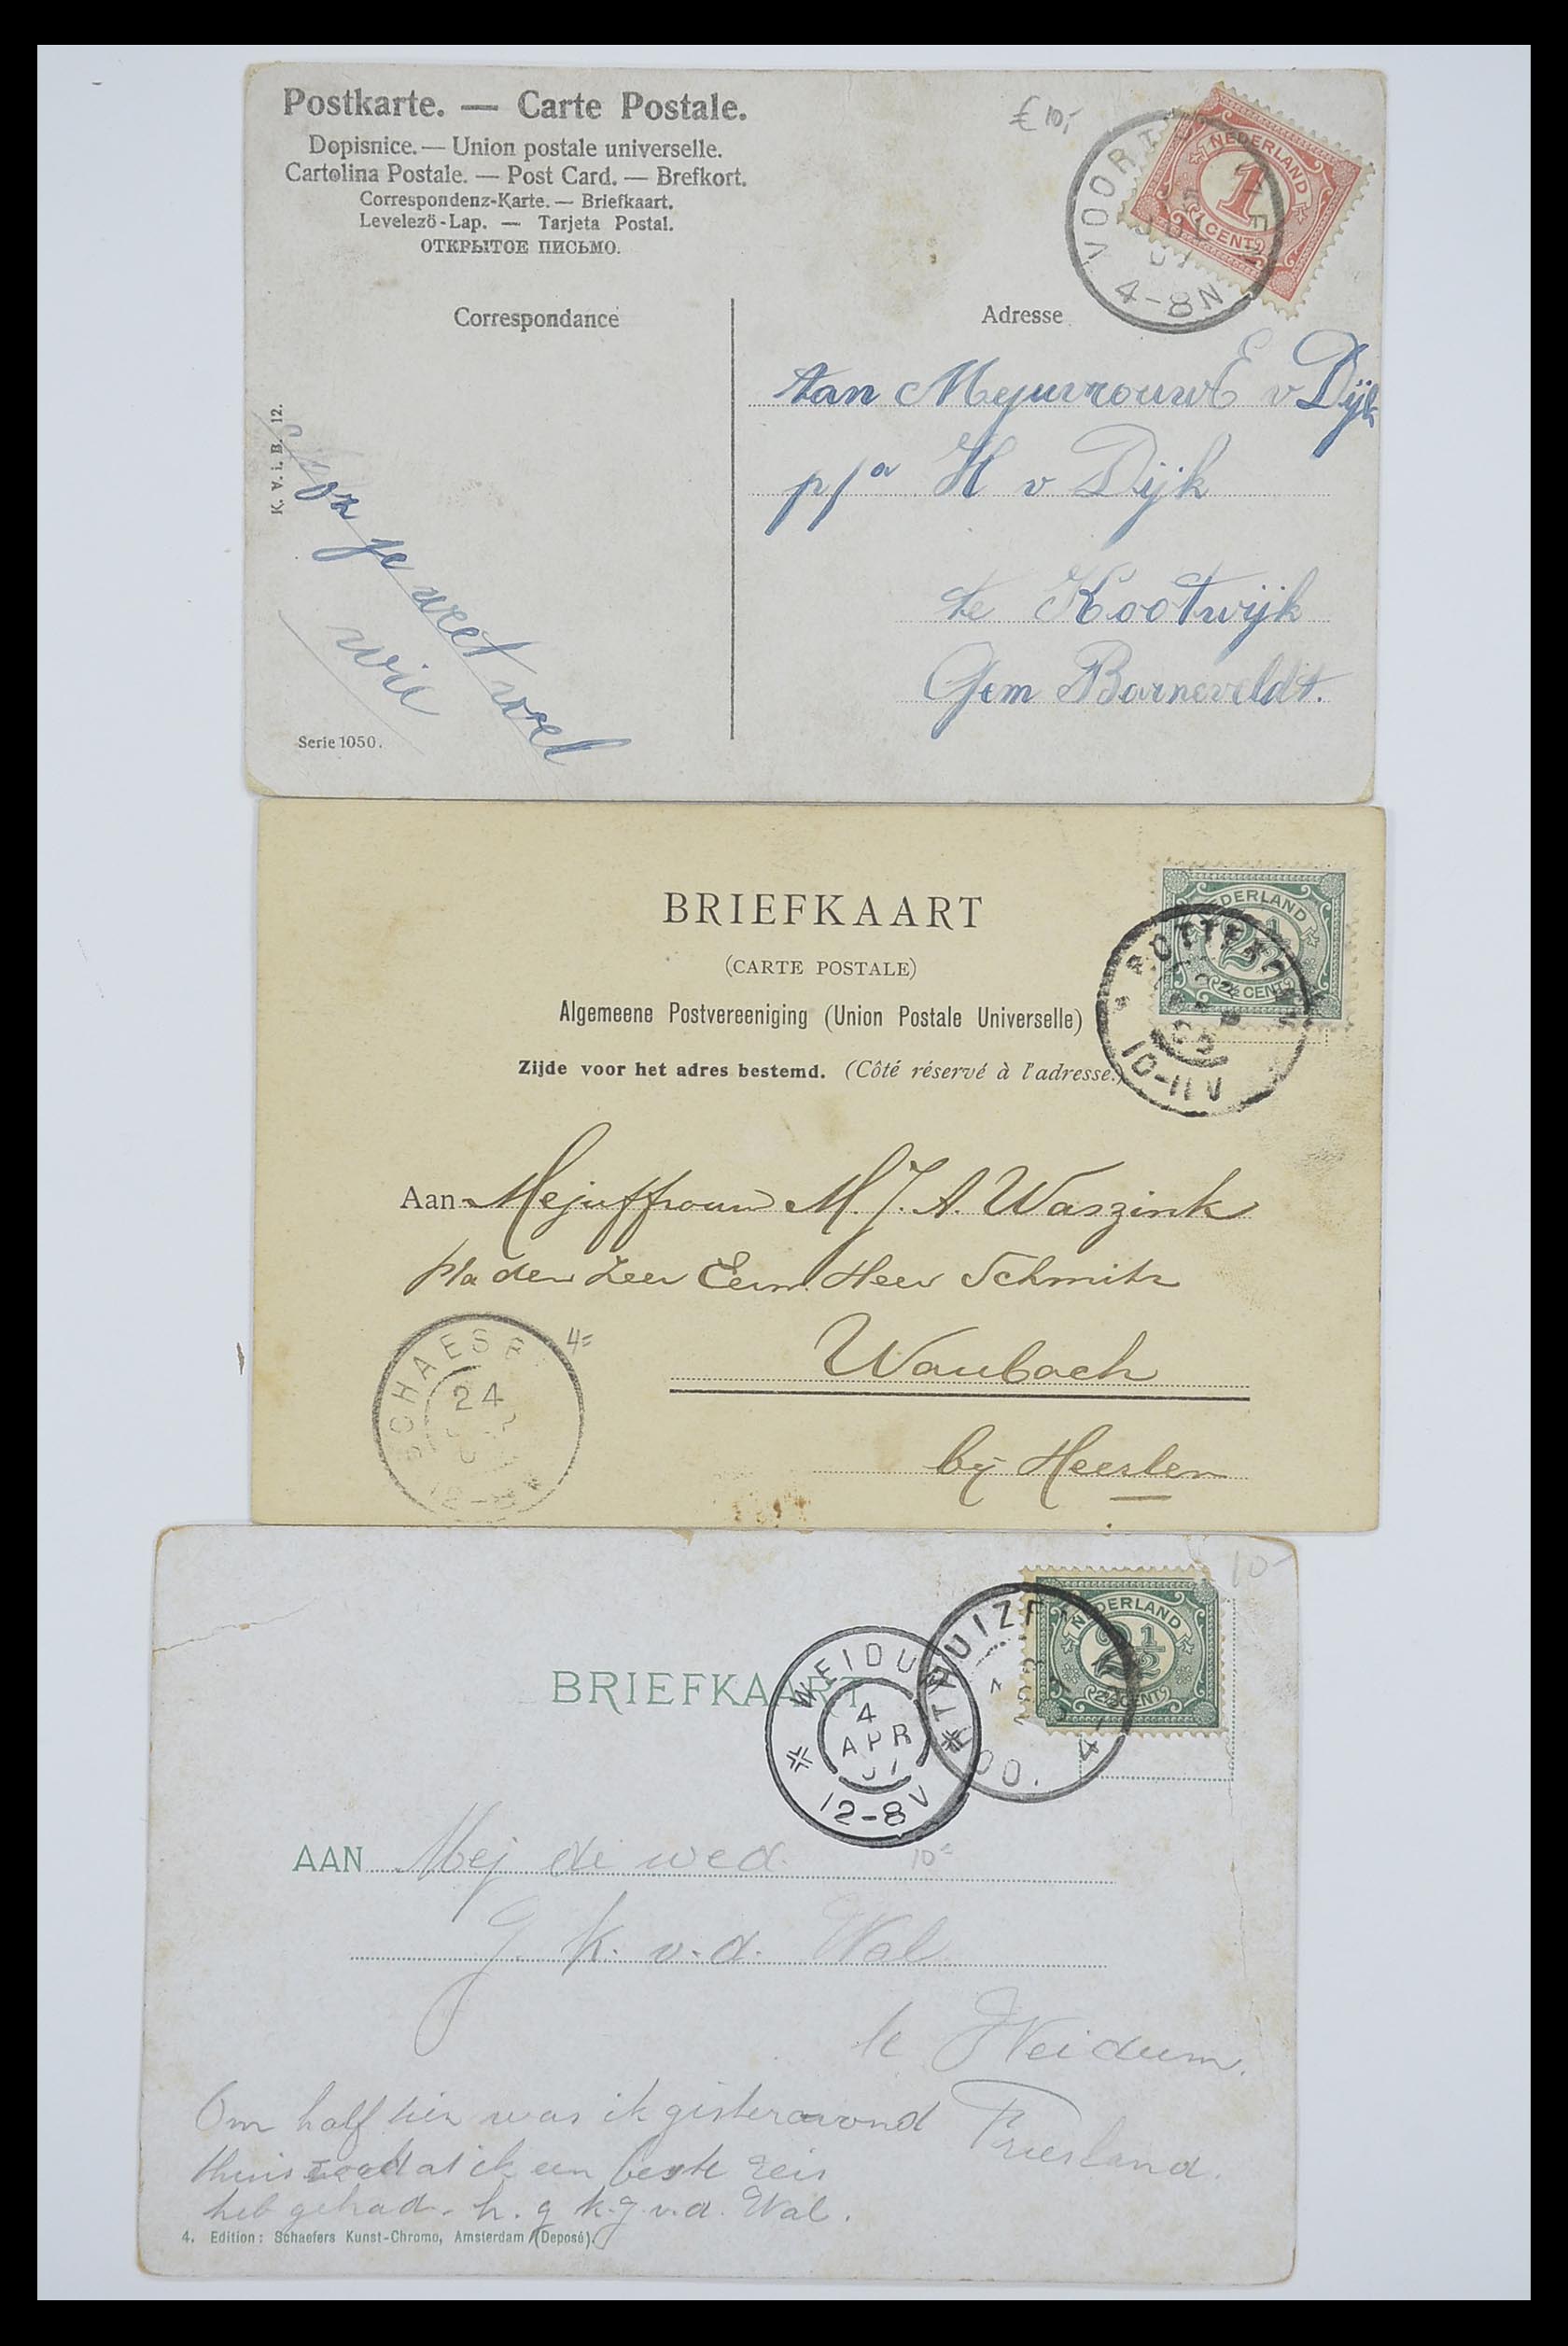 Postkarte. — Carte Postale.
Dopisnice. — Union postale universelle.
Cartolina Postale. — Post Card. — Brefkort.
Correspondenz-Karte. — Briefkaart.
Levelezö-Lap. — Tarjeta Postal.
ОТКРЫТОЕ ПИСЬМО.
£ 10,-
NEDERLAND
1
CENT
VOORT
4-8N
Correspondance
Adresse
K. v. i. B. 12.
je weet wel
wie
Serie 1050.
Aan Mejuvrouw E v Dijk
p/a H v Dijk
te Kootwijk
Gem Barneveldt.
BRIEFKAART
(CARTE POSTALE)
Algemeene Postvereeniging (Union Postale Universelle)
Zijde voor het adres bestemd. (Côté réservé à l'adresse.)
NEDERLAND
2½
2½ CENT
ROTTERD
10-11V
Aan Mejuffrouw M. J. A. Waszink
p/a den Zeer Eerw. Heer Schmitz
Waubach
bij Heerlen
4=
SCHAESB
24
12-8
10-
NEDERLAND
2½
2½ CENT
THUIZE
4
BRIEFKAART
WEIDU
4
APR
07
12-8V
10=
AAN Mej de wed.
J. K. v. d. Wal
te Weidum.
Friesland.
Om half tien was ik gisteravond
thuis zoodat ik een beste reis
heb gehad. h. g k. J. v. d. Wal.
4. Edition: Schaefers Kunst-Chromo, Amsterdam (Deposé)